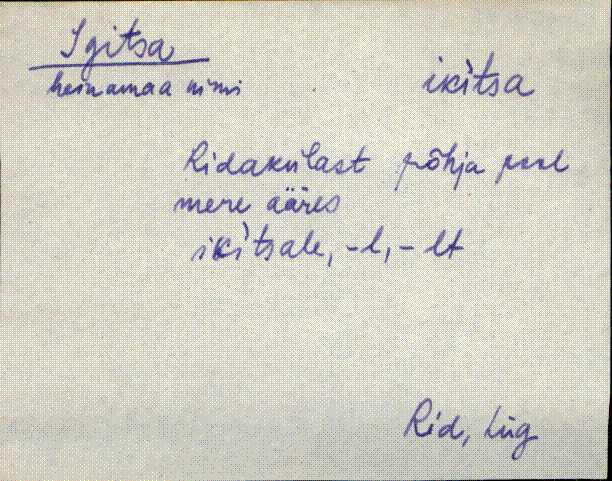 Igitsa
heinamaa nimi
ikìtsa
Ridakülast põhja pool
mere ääres
ikìtsale, -l, -lt
Rid, Lüg